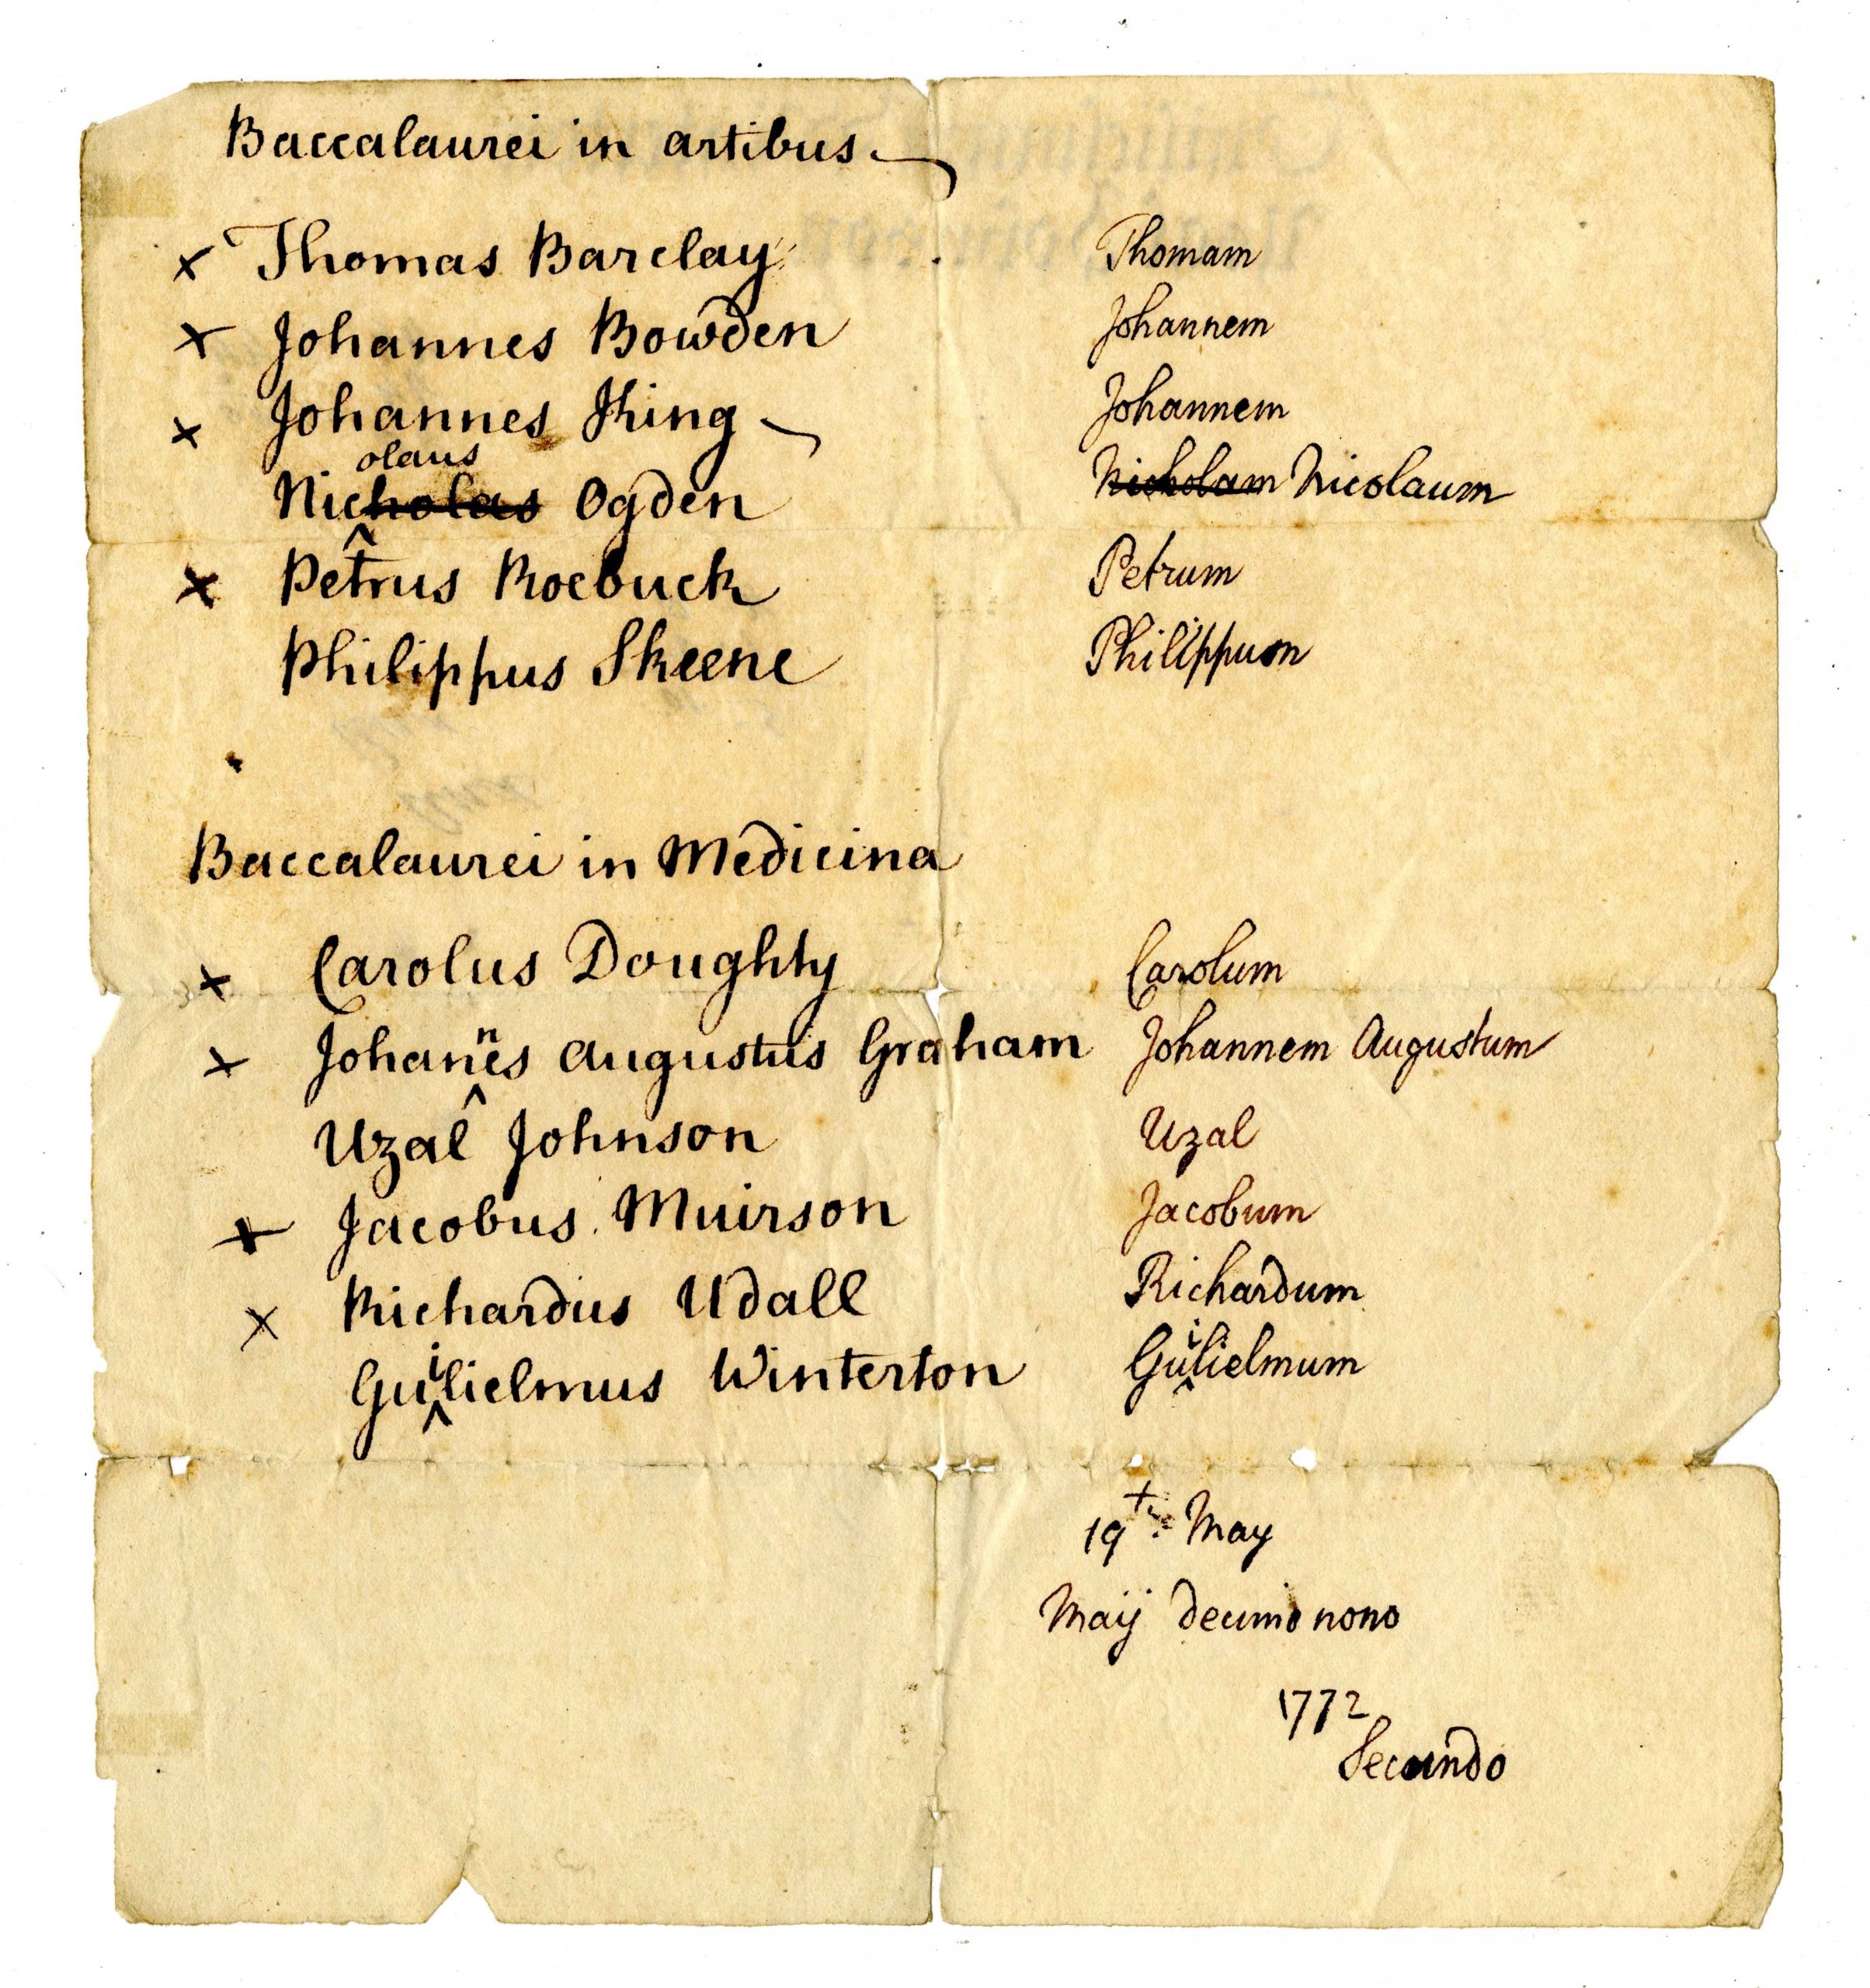 Baccalaurei in artibus
x Thomas Barclay Thomam
x Johannes Bowden Johannem
x Johannes King Johannem
olaus
Nicholas Ogden Nicholam Nicolaum
x Petrus Roebuck Petrum
Philippus Skeene Philippum
Baccalaurei in Medicina
x Carolus Doughty Carolum
x Johannes Augustus Graham Johannem Augustum
Uzal Johnson Uzal
x Jacobus Muirson Jacobum
x Richardus Udall Richardum
Guilielmus Winterton Guilielmum
19th May
Maij decimo nono
1772
Secundo